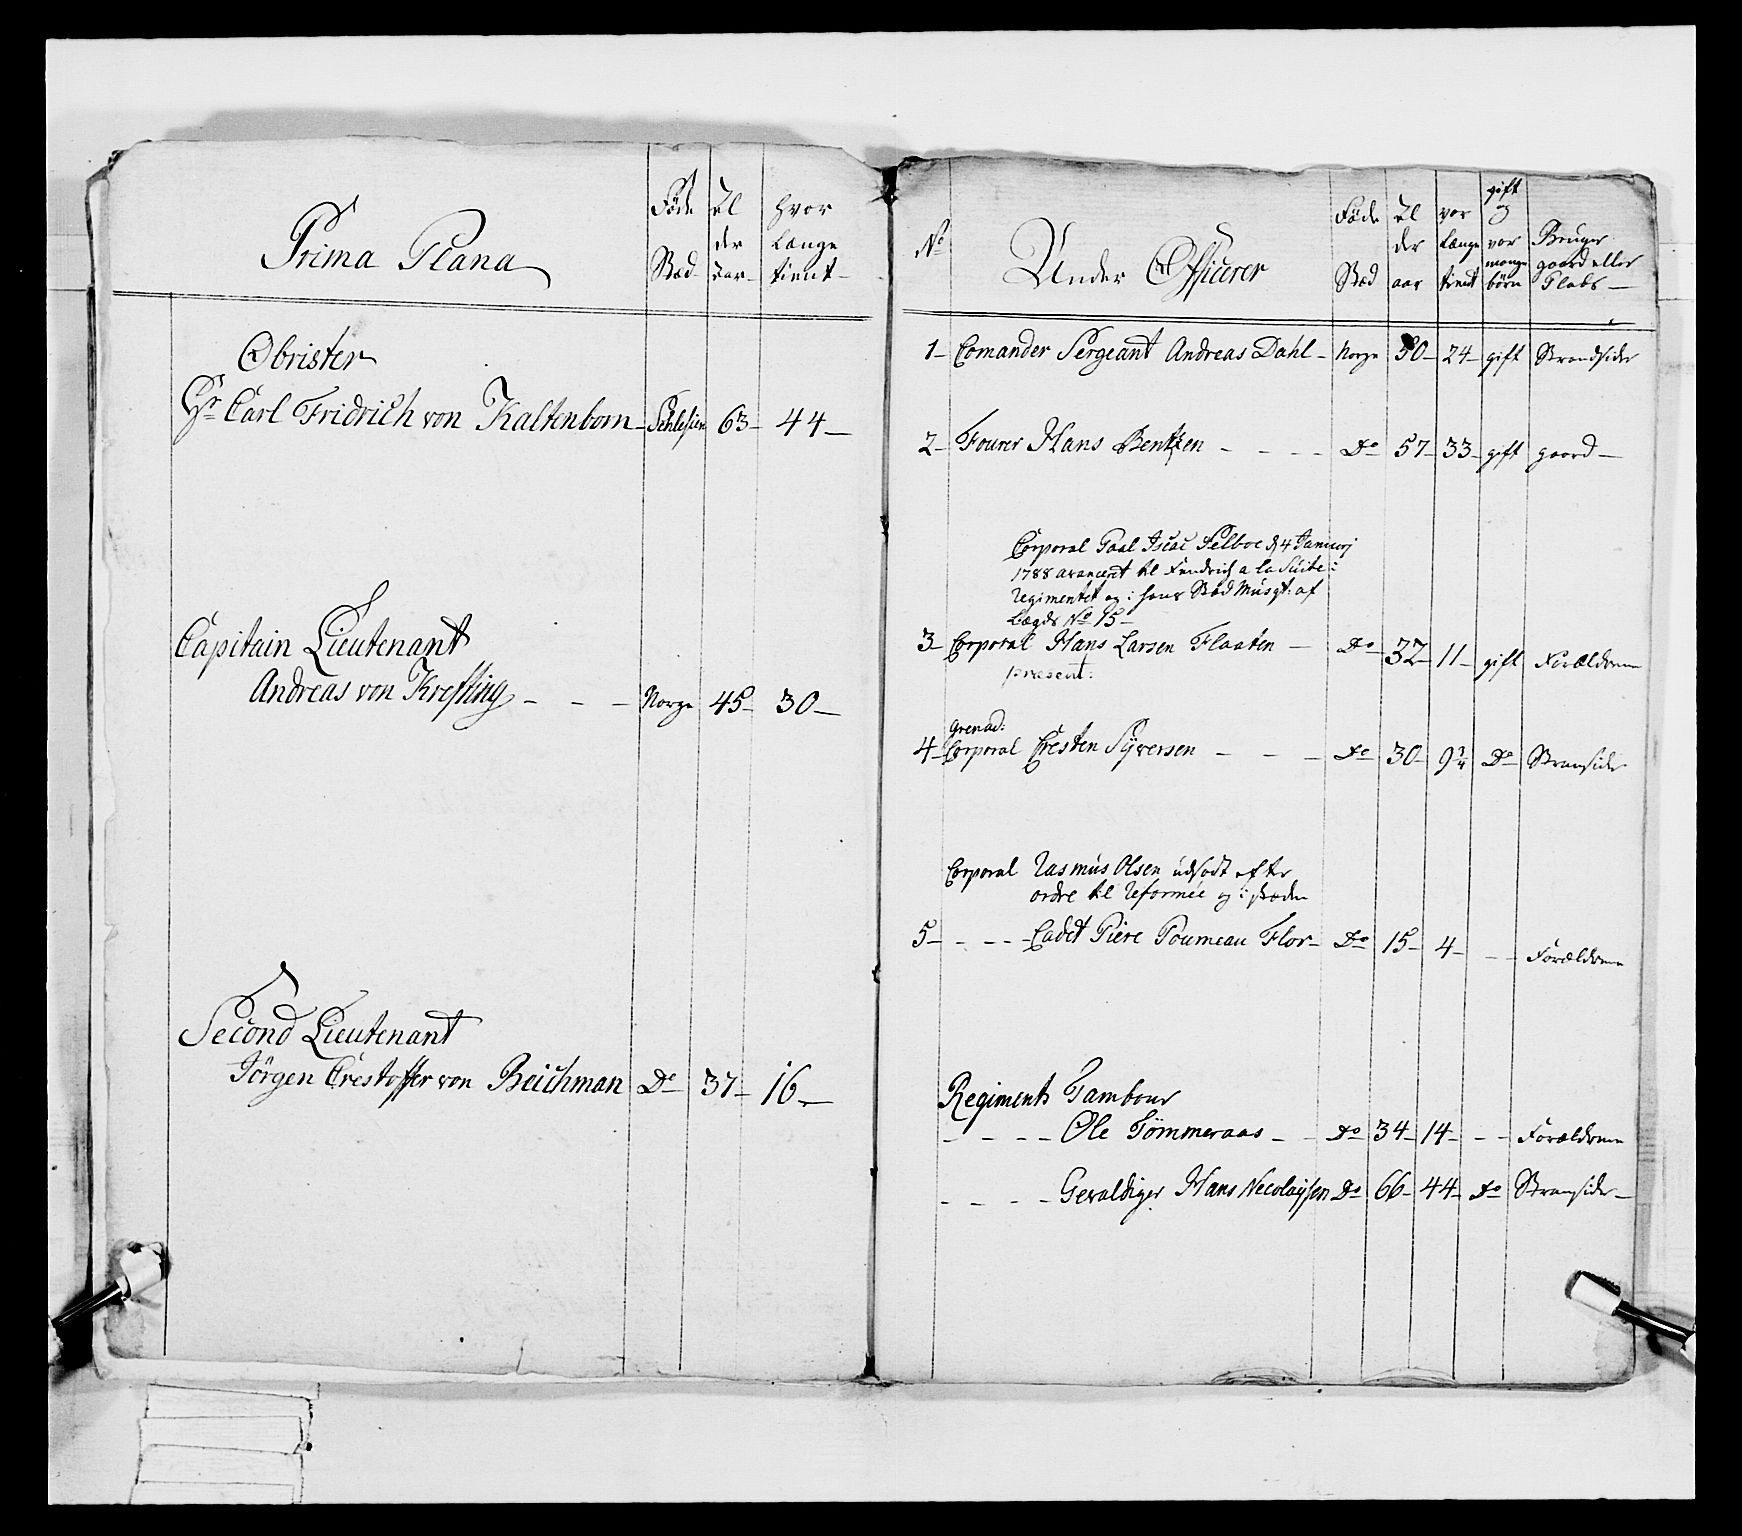 Prima Plana
Føde Stæd
Al der Aar
hvor Længe tient
Obrister
Hr Carl Fridrich von Kaltenborn Schlesien 63 44
Capitain Lieutenant
Andreas von Krefting Norge 45 30
Second Lieutenant
Jörgen Crestoffer von Beichman Do 37 16
No
Under Officerer
Føde Stæd
Al der aar
vor Længe tient
gift og vor mange børn
Bruger gaard eller Plads
1 Comander Sergeant Andreas Dahl Norge 50 24 gift Strandsider
2 Fourer Hans Bentzen Do 57 33 gift gaard
Corporal Paal Iscac Selboe d 4 Januarj
1788 avancert til Fendrich a la Suite i
Regimentet og i hans Stæd Musqt: af
Lægds No 15
3 Corporal Hans Larsen Flaaten Do 32 11 gift Forældrene
present.
Grenad:
4 Corporal Cresten Syversen Do 30 9 1/4 Do Stransider
Corporal Rasmus Olsen udsadt efter
ordre til Reformée og i stæden
5 Cadet Piere Poumeau Flor Do 15 4 Forældrene
Regiments Tambour
Ole Tömmeraas Do 34 14 Forældrene
Gevaldiger Hans Necolaysen Do 66 44 Do Stransider